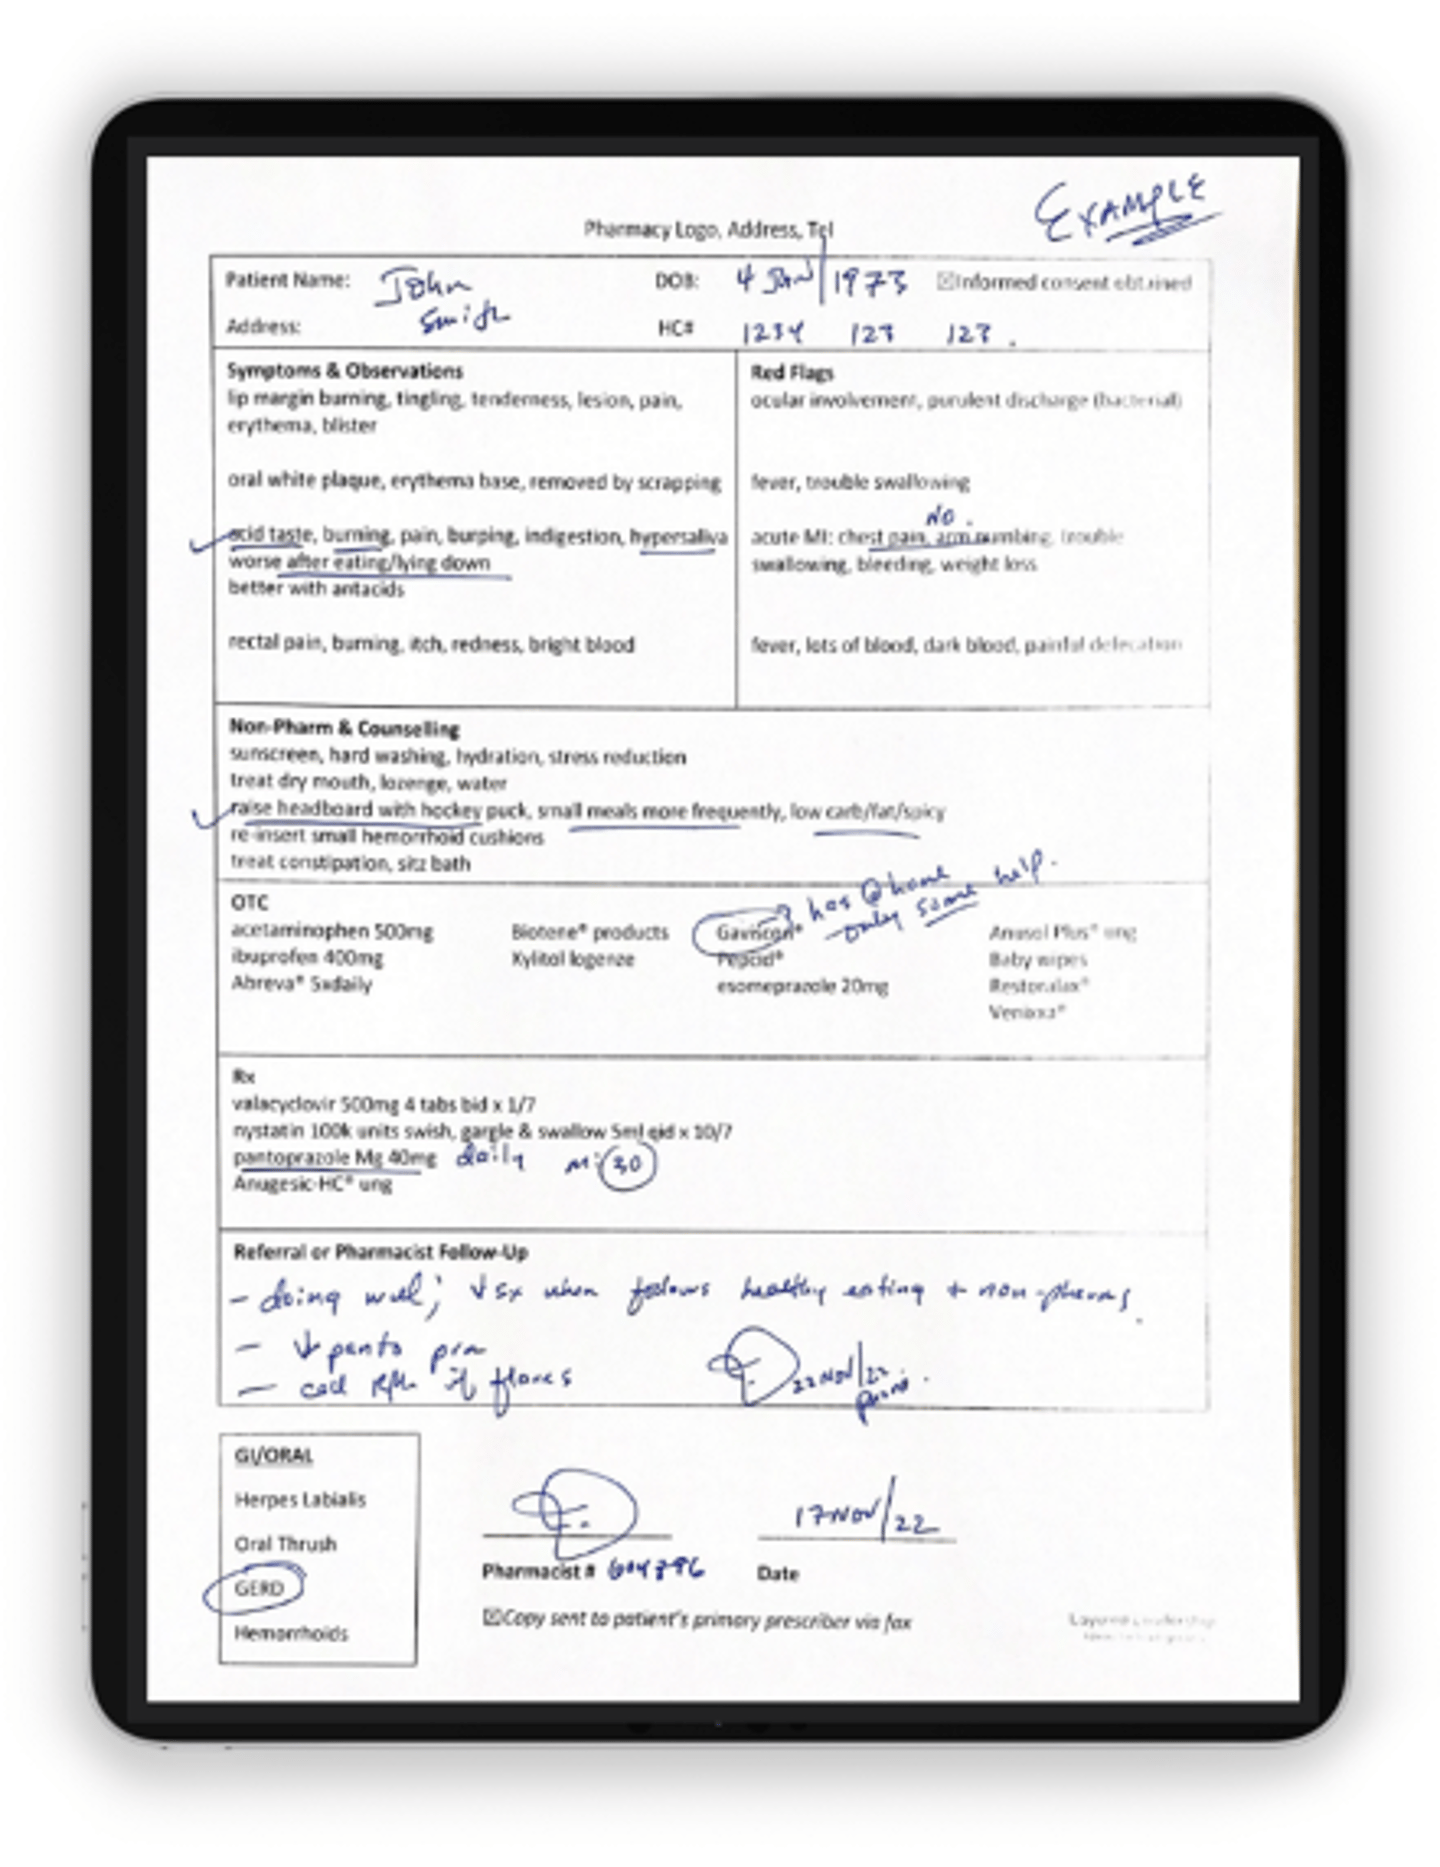 EXAMPLE
Pharmacy Logo, Address, Tel
Patient Name: John Smith DOB: 4 Jan/1973 ☒Informed consent obtained
Address: HC# 1234 123 123.
Symptoms & Observations
lip margin burning, tingling, tenderness, lesion, pain,
erythema, blister
oral white plaque, erythema base, removed by scrapping
acid taste, burning, pain, burping, indigestion, hypersaliva
worse after eating/lying down
better with antacids
rectal pain, burning, itch, redness, bright blood
Red Flags
ocular involvement, purulent discharge (bacterial)
fever, trouble swallowing
NO.
acute MI: chest pain, arm numbing, trouble
swallowing, bleeding, weight loss
fever, lots of blood, dark blood, painful defecation
Non-Pharm & Counselling
sunscreen, hard washing, hydration, stress reduction
treat dry mouth, lozenge, water
raise headboard with hockey puck, small meals more frequently, low carb/fat/spicy
re-insert small hemorrhoid cushions
treat constipation, sitz bath
OTC
acetaminophen 500mg
ibuprofen 400mg
Abreva® 5xdaily
Biotene® products
Xylitol logenze
Gaviscon® → has @ home
only some help.
Pepcid®
esomeprazole 20mg
Anusol Plus® ung
Baby wipes
Restoralax®
Rx
valacyclovir 500mg 4 tabs bid x 1/7
nystatin 100k units swish, gargle & swallow 5ml qid x 10/7
pantoprazole Mg 40mg daily m: 30
Anugesic-HC® ung
Referral or Pharmacist Follow-Up
- doing well; ↓ sx when follows healthy eating + non-pharms.
- ↓ panto prn
- call RPh if flares
22 Nov/22
GI/ORAL
Herpes Labialis
Oral Thrush
GERD
Hemorrhoids
17 NOV/22
Pharmacist # Date
☒Copy sent to patient's primary prescriber via fax